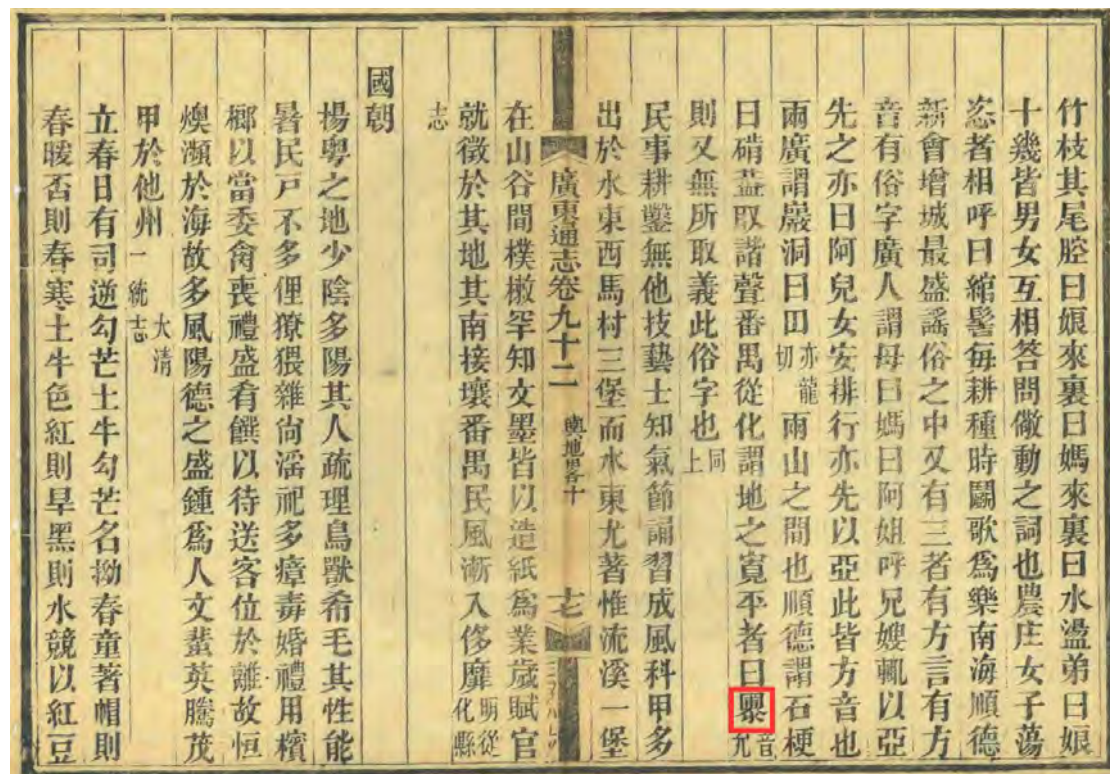 竹枝其尾腔曰娘來裏曰媽來裏曰水盪弟曰娘
十幾皆男女互相答問儆動之詞也農庄女子蕩
恣者相呼曰綰髻每耕種時鬭歌爲樂南海順德
新會增城最盛謡俗之中又有三者有方言有方
音有俗字廣人謂母曰媽曰阿姐呼兄嫂輒以亞
先之亦曰阿兒女安排行亦先以亞此皆方音也
兩廣謂巖洞曰亦龍切兩山之間也順德謂石梗
曰葢取諧聲番禺從化謂地之寬平者曰音
則又無所取義此俗字也同上
民事耕鑿無他技藝士知氣節誦習成風科甲多
出於水東西馬村三堡而水東尤著惟流溪一堡
廣東通志卷九十二 輿地畧十 十七
在山谷間樸樕罕知文墨皆以造紙爲業歲賦官
就徵於其地其南接壤番禺民風漸入侈靡明從化縣
志
國朝
揚粤之地少陰多陽其人疏理鳥獸希毛其性能
暑民戸不多俚獠猥雜尚滛祀多瘴毒婚禮用檳
榔以當委禽喪禮盛肴饌以待送客位於離故恒
燠瀕於海故多風陽德之盛鍾爲人文蜚英騰茂
甲於他州大清一統志
立春日有司逆勾芒土牛勾芒名拗春童著帽則
春暖否則春寒土牛色紅則旱黑則水競以紅豆